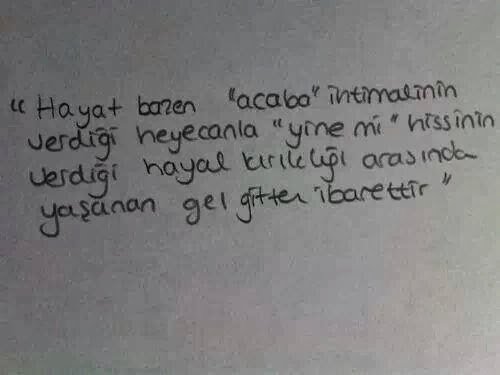 "Hayat bazen "acaba" ihtimalinin
verdiği heyecanla "yine mi" hissinin
verdiği hayal kırıklığı arasında
yaşanan gel gitten ibarettir"